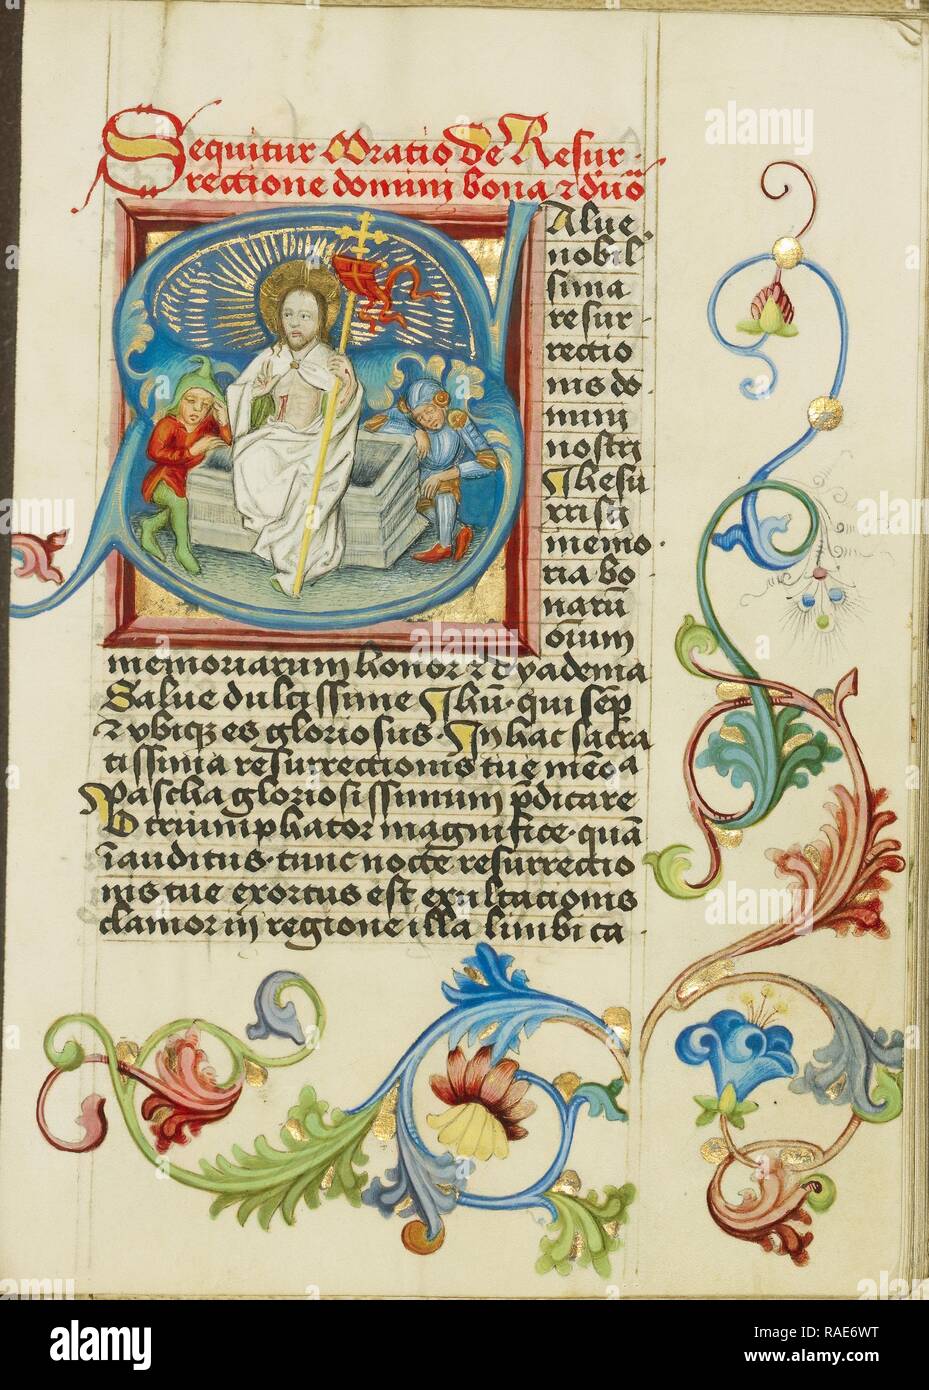 Sequitur Oratio De Resur-
rectione domini bona & duō
Salue
nobil
sima
resur-
rectio
nis do-
mini
nostri
Ihesu
xristi
memo-
ria bo-
narū
oīum
memoriarum honor & dyadema
Salue dulcissime Ihū· qui semp
& ubiqȝ es gloriosus· In hac sacra
tissima resurrectionis tue
Pascha gloriosissimum pdicare
O triumphator magnifice· quā
īauditus· tunc nocte resurrectio
nis tue exortus est exultationis
clamor in regione illa limbica
alamy
alamy stock photo
RAE6WT
www.alamy.com